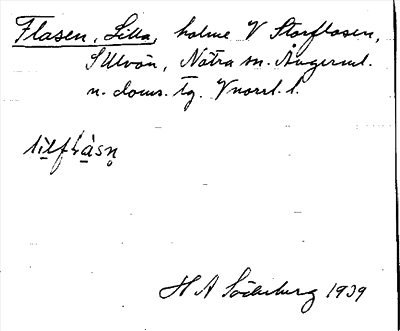 Flasen, Lilla, holme V Storflasen,
S Ulvön, Nätra sn. Ångerml.
n. doms. tg. V norrl. l.
lìlflàsn̥
H A Söderberg 1939